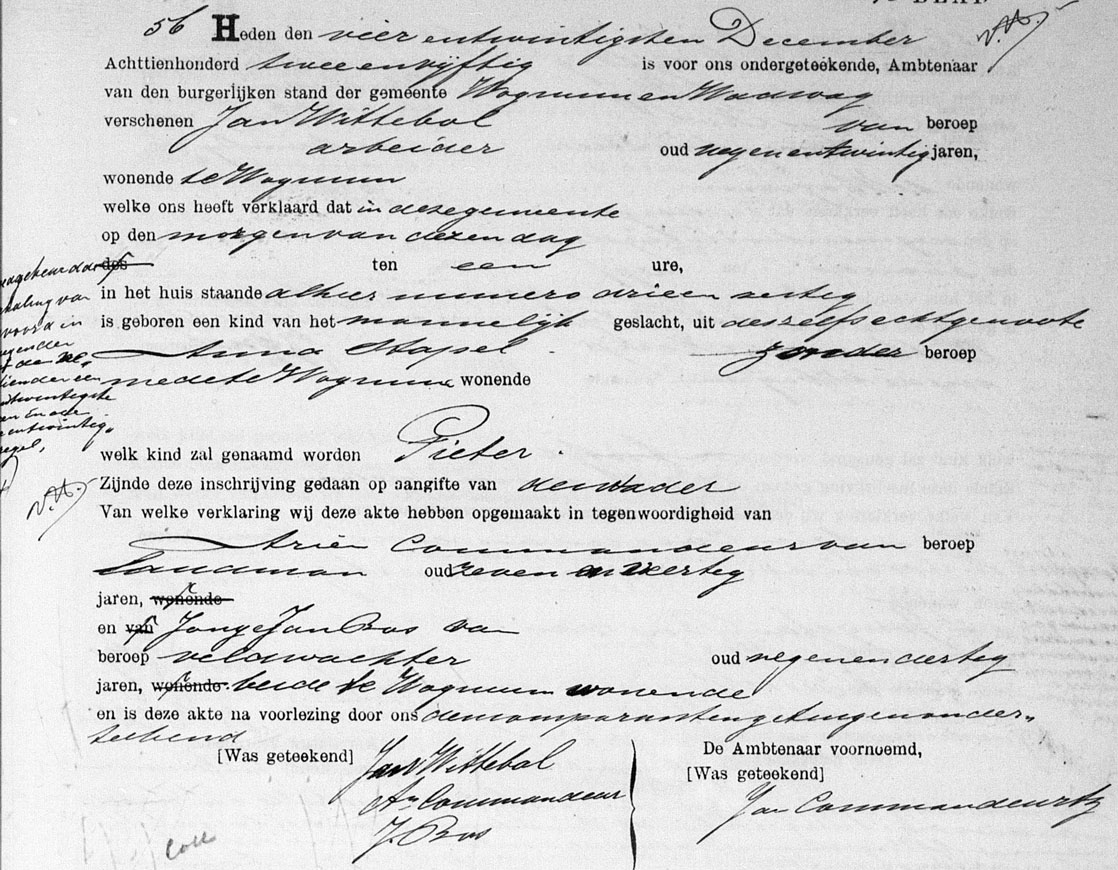 56 Heden den vier entwintigsten December
Achttienhonderd twee envijftig is voor ons ondergeteekende, Ambtenaar
van den burgerlijken stand der gemeente Wognum en Wadway
verschenen Jan Wittebol van beroep
arbeider oud negen entwintig jaren,
wonende te Wognum
welke ons heeft verklaard dat in deze gemeente
op den morgen van dezen dag
des ten een ure,
in het huis staande alhier numero drie en zestig
is geboren een kind van het mannelijk geslacht, uit deszelfs echtgenoote
Anna Stapel zonder beroep
mede te Wognum wonende
welk kind zal genaamd worden Pieter.
Zijnde deze inschrijving gedaan op aangifte van den vader
Van welke verklaring wij deze akte hebben opgemaakt in tegenwoordigheid van
Arie Commandeur van beroep
Landman oud zeven en veertig
jaren, wonende
en van Jonge Jan Bos van
beroep veldwachter oud negen en dertig
jaren, wonende beide te Wognum wonende
en is deze akte na voorlezing door ons den comparant en getuigen onder„
teekend
[Was geteekend] Jan Wittebol De Ambtenaar voornoemd,
Ar Commandeur [Was geteekend]
J. Bos Jan Commandeur